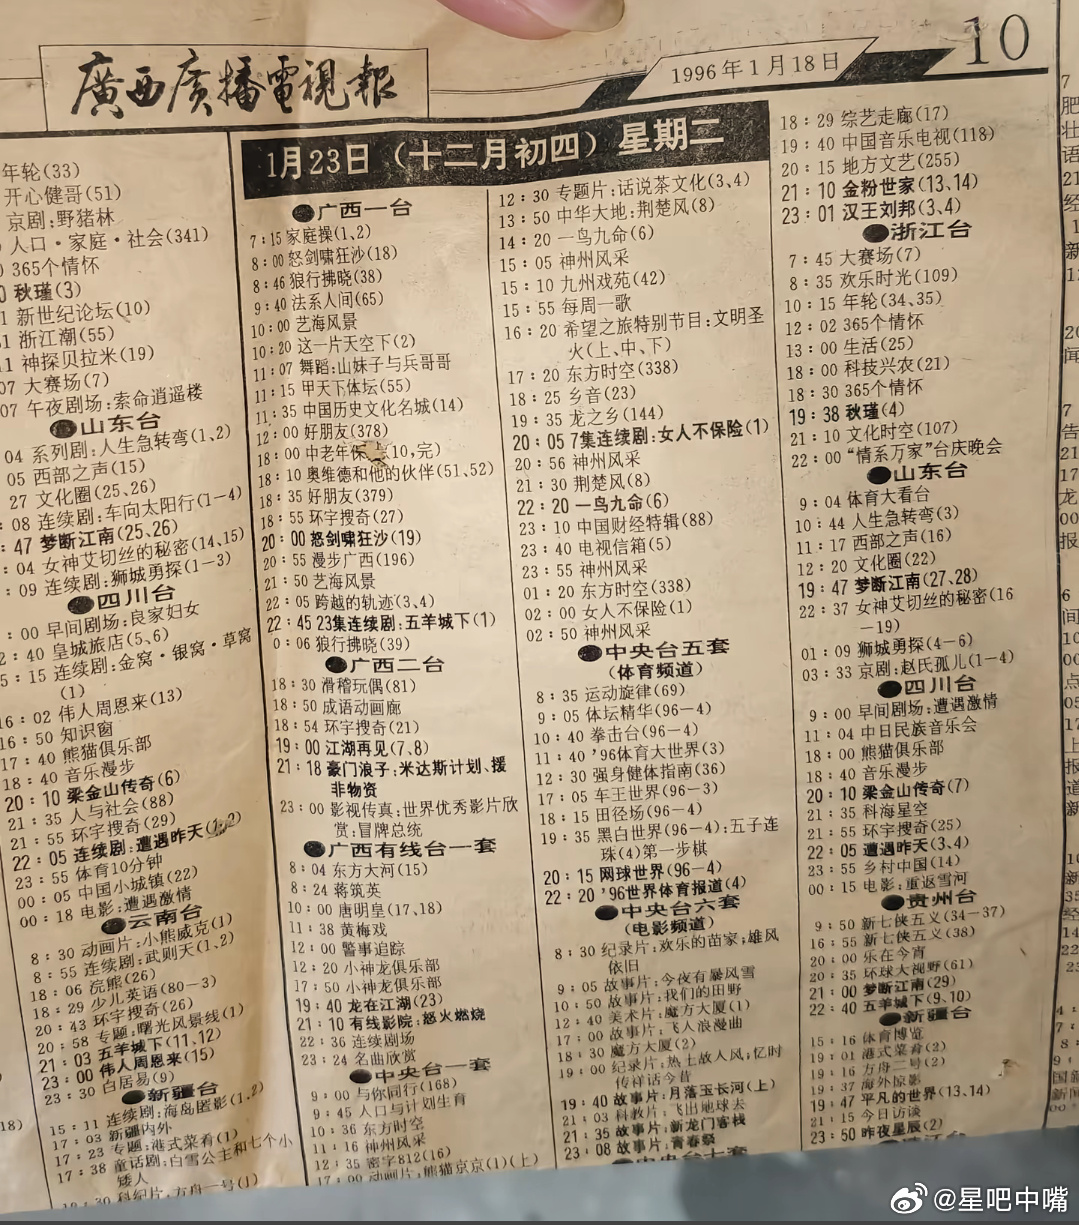 廣西廣播電視報
1996年1月18日
10
年轮(33)
开心健哥(51)
京剧:野猪林
人口·家庭·社会(341)
365个情怀
秋瑾(3)
新世纪论坛(10)
浙江潮(55)
神探贝拉米(19)
07 大赛场(7)
07 午夜剧场:索命逍遥楼
●山东台
04 系列剧:人生急转弯(1、2)
05 西部之声(15)
27 文化圈(25、26)
:08 连续剧:车向太阳行(1-4)
:47 梦断江南(25、26)
:04 女神艾切丝的秘密(14、15)
:09 连续剧:狮城勇探(1-3)
●四川台
:00 早间剧场:良家妇女
2:40 皇城旅店(5、6)
5:15 连续剧:金窝·银窝·草窝
(1)
16:02 伟人周恩来(13)
16:50 知识窗
17:40 熊猫俱乐部
18:40 音乐漫步
20:10 梁金山传奇(6)
21:35 人与社会(88)
21:55 环宇搜奇(29)
22:05 连续剧:遭遇昨天(1、2)
23:55 体育10分钟
00:05 中国小城镇(22)
00:18 电影:遭遇激情
●云南台
8:30 动画片:小熊威克(1)
8:55 连续剧:武则天(1、2)
18:06 浣熊(26)
18:29 少儿英语(80-3)
20:43 环宇搜奇(26)
20:58 专题:曙光风景线(1)
21:03 五羊城下(11、12)
23:00 伟人周恩来(15)
23:30 白居易(9)
●新疆台
15:11 连续剧:海岛匿影(1、2)
17:03 新疆内外
17:23 专题:港式菜肴(1)
17:38 童话剧:白雪公主和七个小
矮人
科纪片:方舟一号(1)
1月23日(十二月初四)星期二
●广西一台
7:15 家庭操(1、2)
8:00 怒剑啸狂沙(18)
8:46 狼行拂晓(38)
9:40 法系人间(65)
10:00 艺海风景
10:20 这一片天空下(2)
11:07 舞蹈:山妹子与兵哥哥
11:15 甲天下体坛(55)
11:35 中国历史文化名城(14)
12:00 好朋友(378)
18:00 中老年保 10,完)
18:10 奥维德和他的伙伴(51、52)
18:35 好朋友(379)
18:55 环宇搜奇(27)
20:00 怒剑啸狂沙(19)
20:55 漫步广西(196)
21:50 艺海风景
22:05 跨越的轨迹(3、4)
22:45 23集连续剧:五羊城下(1)
0:06 狼行拂晓(39)
●广西二台
18:30 滑稽玩偶(81)
18:50 成语动画廊
18:54 环宇搜奇(21)
19:00 江湖再见(7、8)
21:18 豪门浪子:米达斯计划、援
非物资
23:00 影视传真:世界优秀影片欣
赏:冒牌总统
●广西有线台一套
8:04 东方大河(15)
8:24 蒋筑英
10:00 唐明皇(17、18)
11:38 黄梅戏
12:00 警事追踪
12:20 小神龙俱乐部
17:50 小神龙俱乐部
19:40 龙在江湖(23)
21:10 有线影院:怒火燃烧
22:36 连续剧场
23:24 名曲欣赏
●中央台一套
9:00 与你同行(168)
9:45 人口与计划生育
10:36 东方时空
11:16 神州风采
12:35 密字812(16)
17:00 动画片:熊猫京京(1)(上)
12:30 专题片:话说茶文化(3、4)
13:50 中华大地:荆楚风(8)
14:20 一鸟九命(6)
15:05 神州风采
15:10 九州戏苑(42)
15:55 每周一歌
16:20 希望之旅特别节目:文明圣
火(上、中、下)
17:20 东方时空(338)
18:25 乡音(23)
19:35 龙之乡(144)
20:05 7集连续剧:女人不保险(1)
20:56 神州风采
21:30 荆楚风(8)
22:20 一鸟九命(6)
23:10 中国财经特辑(88)
23:40 电视信箱(5)
23:55 神州风采
01:20 东方时空(338)
02:00 女人不保险(1)
02:50 神州风采
●中央台五套
(体育频道)
8:35 运动旋律(69)
9:05 体坛精华(96-4)
10:40 拳击台(96-4)
11:40 '96体育大世界(3)
12:30 强身健体指南(36)
17:05 车王世界(96-3)
18:15 田径场(96-4)
19:35 黑白世界(96-4):五子连
珠(4)第一步棋
20:15 网球世界(96-4)
22:20 '96世界体育报道(4)
●中央台六套
(电影频道)
8:30 纪录片:欢乐的苗家;雄风
依旧
9:05 故事片:今夜有暴风雪
10:50 故事片:我们的田野
12:40 美术片:魔方大厦(1)
17:00 故事片:飞人浪漫曲
18:30 魔方大厦(2)
19:00 纪录片:热土故人风;忆时
传祥话今昔
19:40 故事片:月落玉长河(上)
21:03 科教片:飞出地球去
21:35 故事片:新龙门客栈
23:08 故事片:青春祭
18:29 综艺走廊(17)
19:40 中国音乐电视(118)
20:15 地方文艺(255)
21:10 金粉世家(13、14)
23:01 汉王刘邦(3、4)
●浙江台
7:45 大赛场(7)
8:35 欢乐时光(109)
10:15 年轮(34、35)
12:02 365个情怀
13:00 生活(25)
18:00 科技兴农(21)
18:30 365个情怀
19:38 秋瑾(4)
21:10 文化时空(107)
22:00 “情系万家”台庆晚会
●山东台
9:04 体育大看台
10:44 人生急转弯(3)
11:17 西部之声(16)
12:20 文化圈(22)
19:47 梦断江南(27、28)
22:37 女神艾切丝的秘密(16
-19)
01:09 狮城勇探(4-6)
03:33 京剧:赵氏孤儿(1-4)
●四川台
9:00 早间剧场:遭遇激情
11:04 中日民族音乐会
18:00 熊猫俱乐部
18:40 音乐漫步
20:10 梁金山传奇(7)
21:35 科海星空
21:55 环宇搜奇(25)
22:05 遭遇昨天(3、4)
23:55 乡村中国(14)
00:15 电影:重返雪河
●贵州台
9:50 新七侠五义(34-37)
16:55 新七侠五义(38)
20:00 乐在今宵
20:35 环球大视野(61)
21:00 梦断江南(29)
22:40 五羊城下(9、10)
●新疆台
15:16 体育博览
19:01 港式菜肴(2)
19:16 方舟二号(2)
19:37 海外掠影
19:47 平凡的世界(13、14)
21:15 今日访谈
23:50 昨夜星辰(2)
@星吧中嘴